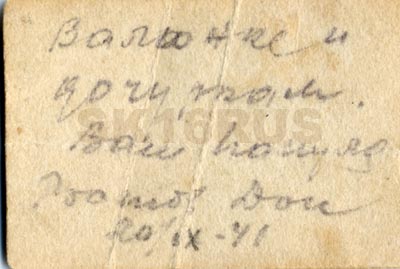 Валюнке и
дочуркам.
Ваш папуля
Ростов Дон
20/IX-41
SK16RUS